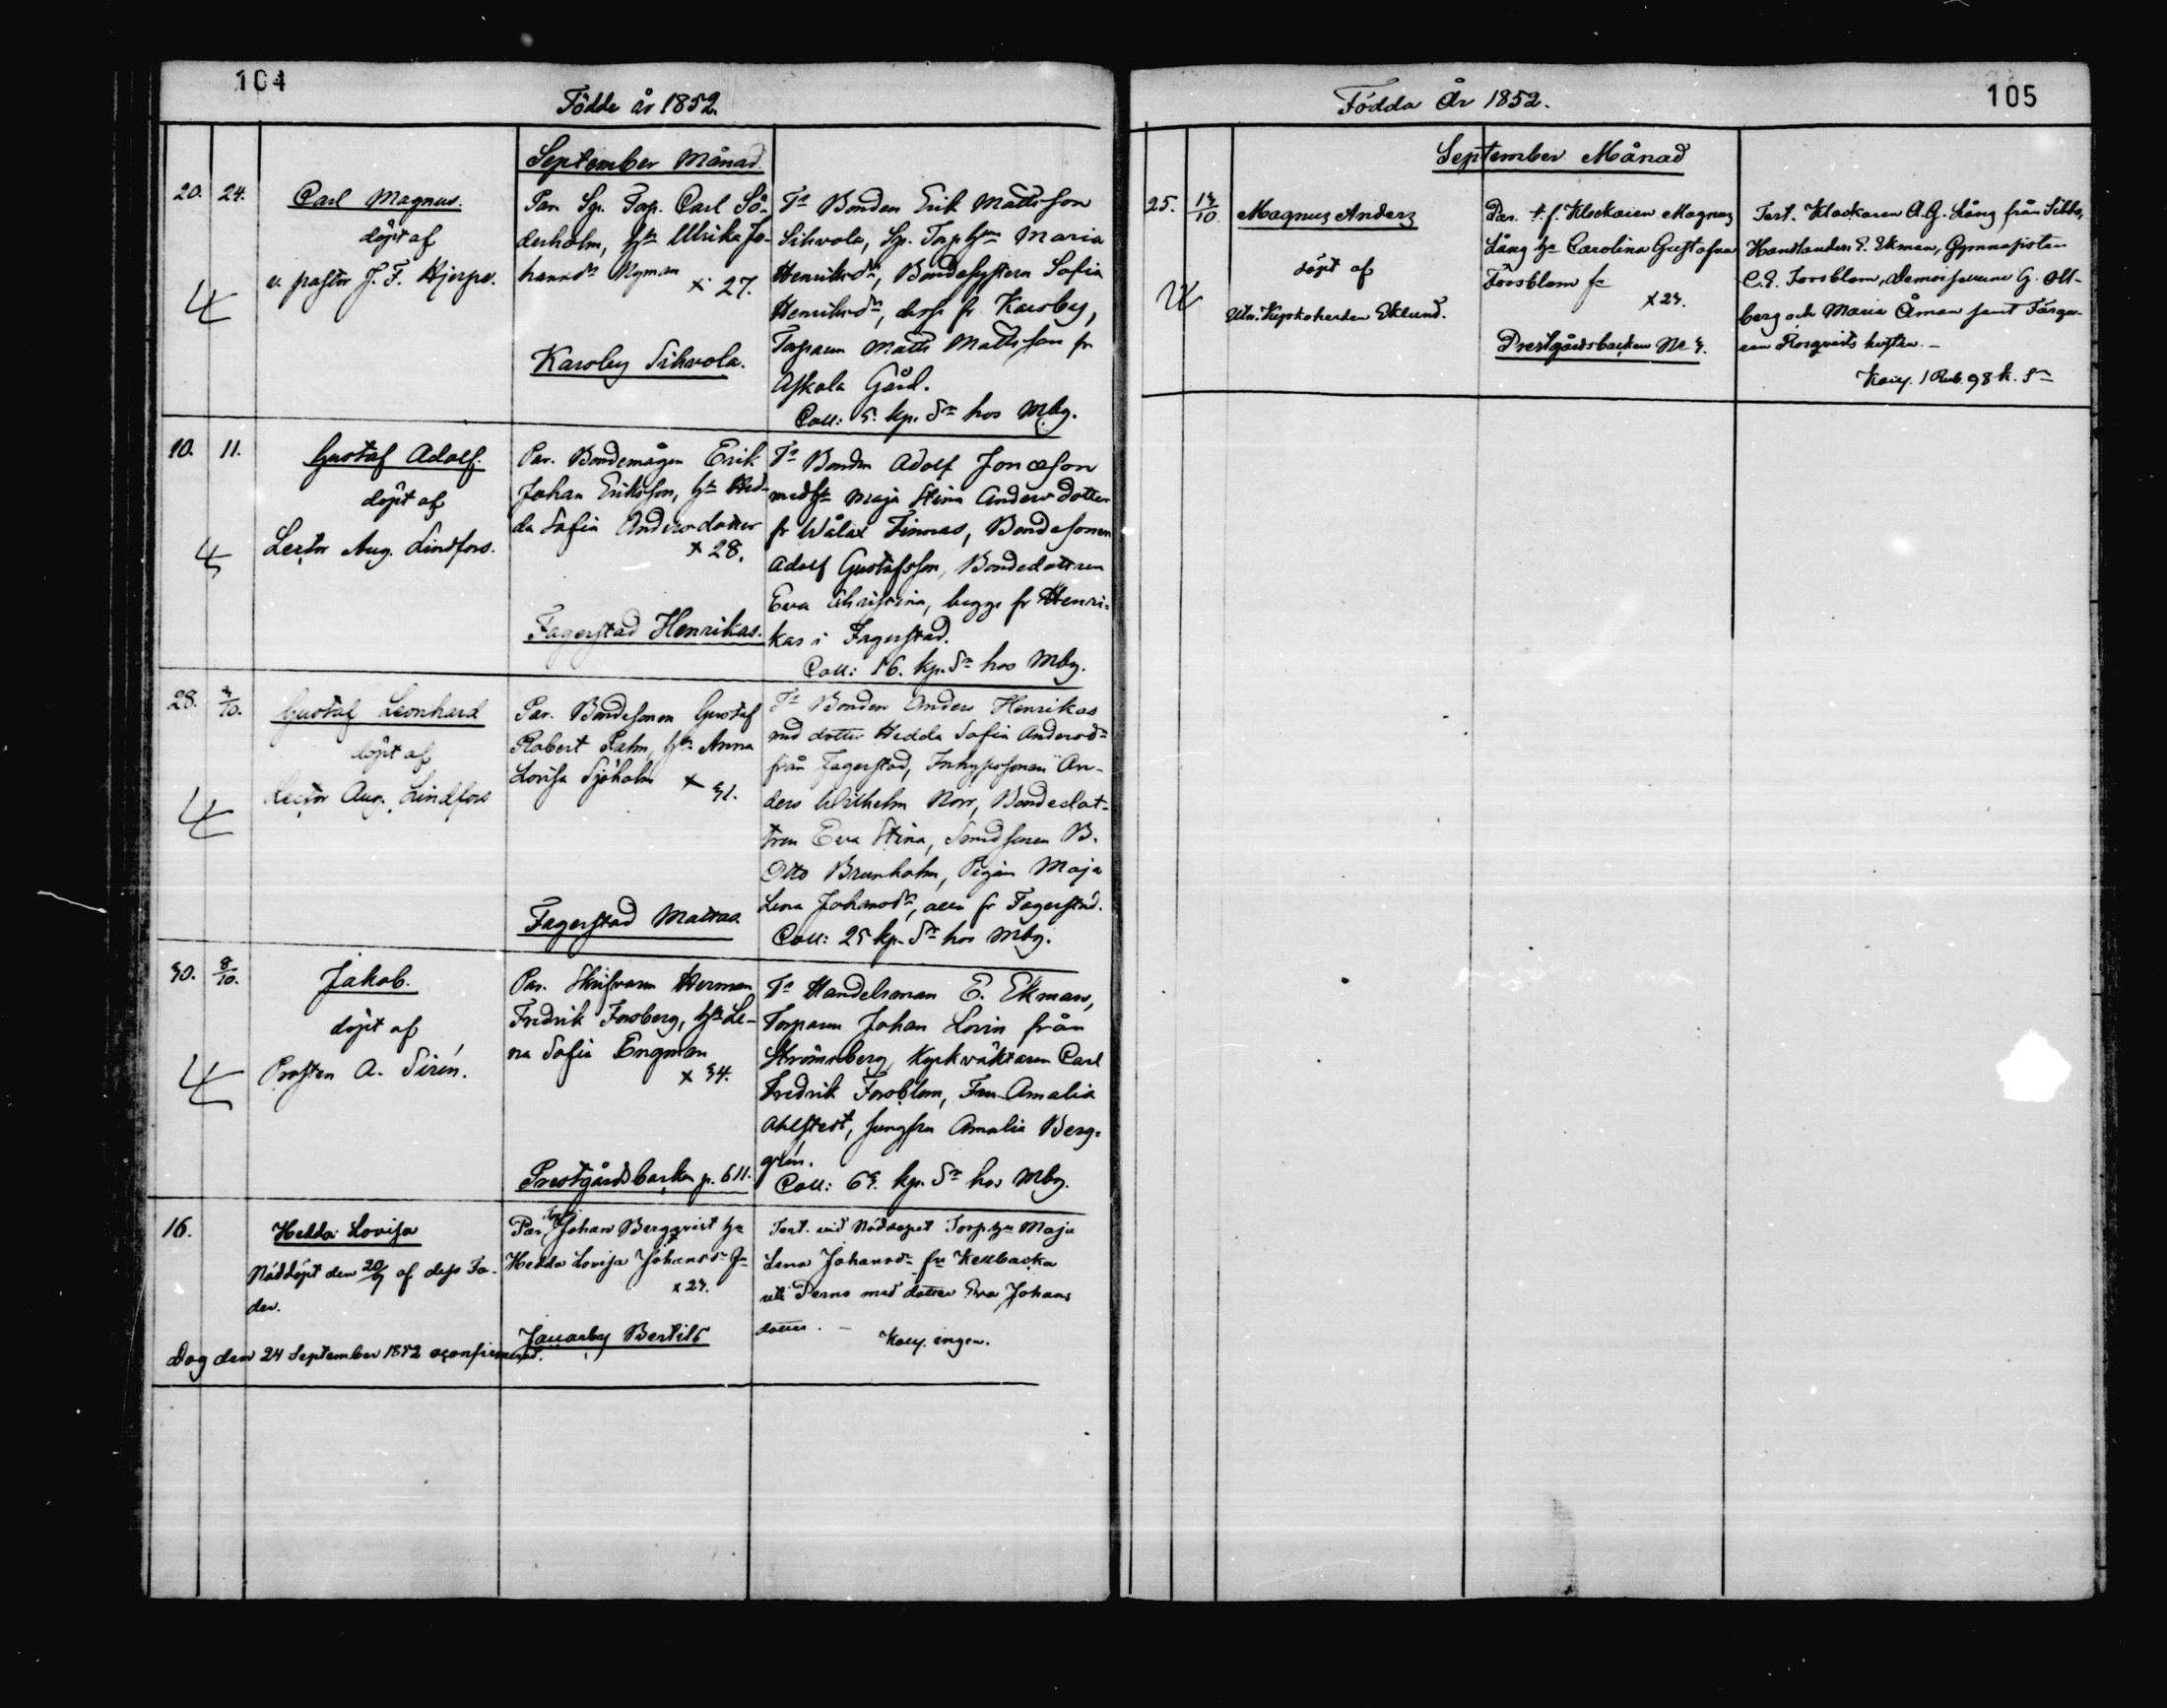 104
Födde år 1852.
September Månad.
20. 24.
Carl Magnus.
döpt af
v. pastor J. F. Hjerpe.
Par. Sp. Torp. Carl Sö-
derholm, hu Ulrika Jo-
hansdr Nyman
x 27.
Karsby Sihvola.
Tn Bonden Erik Mattsson
Sihvola, Sp. Torp hun Maria
Henriksdr, Bondesystern Sofia
Henriksdr, dessa fr Karsby,
Torparen Matts Mattsson fr
Askola Gård.
Coll: 5. kp. Sr hos Mbg.
10. 11.
Gustaf Adolf.
döpt af
Lector Aug. Lindfors.
Par. Bondemågen Erik
Johan Eriksson, hu Hed-
da Sofia Andersdotter
x 28.
Fagerstad Henrikas.
Tn Bonden Adolf Jonasson
med hu Maja Stina Andersdotter
fr Wålax Finnas, Bondesonen
Adolf Gustafsson, Bondedottren
Eva Christina, begge fr Henri-
kas i Fagerstad.
Coll: 16. kp. Sr hos Mbg.
28. 3/10.
Gustaf Leonhard
döpt af
Lector Aug. Lindfors
Par. Bondesonen Gustaf
Robert Palm, hu Anna
Lovisa Sjöholm x 31.
Fagerstad Mattas
Tn Bonden Anders Henrikas
med dotter Hedda Sofia Andersdr
från Fagerstad, Inhysessonen An-
ders Wilhelm Norr, Bondedot-
tren Eva Stina, Smedsonen B.
Otto Brunholm, Pigan Maja
Lena Johansdr, alla fr Fagerstad.
Coll: 25 kp. Sr hos Mbg.
30. 8/10.
Jakob.
döpt af
Prosten A. Sirén.
Par. Skrifvaren Herman
Fredrik Forsberg, hu Le-
na Sofia Engman
x 34.
Prestgårdsbacka p. 611.
Tn Handelsman E. Ekman,
Torparen Johan Lorin från
Strömsberg, Kyrkväktaren Carl
Fredrik Forsblom, Fru Amalia
Ahlstedt, Jungfru Amalia Berg-
grén.
Coll: 63. kp. Sr hos Mbg.
16.
Hedda Lovisa
Nöddöpt den 20/9 af dess Fa-
der.
Dog den 24 September 1852 oconfirmerad.
Par. Torp. Johan Bergqvist hu
Hedda Lovisa Johansdr fr
x 23.
Jackarby Bertils
Test. vid Nöddopet Torp.hu Maja
Lena Johansdr fr Kellbacka
uti Perno med dotter Eva Johans
dotter. —
Koll. ingen.
Födda År 1852.
105
September Månad
25. 13/10.
Magnus Anders
döpt af
Utn. Kyrkoherden Eklund.
Par. t. f. Klockaren Magnus
Lång hu Carolina Gustafva
Forsblom fr
x 23.
Prestgårdsbacken No 3.
Test. Klockaren A. G. Lång från Sibbo,
Handlanden E. Ekman, Gymnasisten
C. E. Forsblom, Demoisellerne G. Ott-
berg och Maria Åman samt Färga-
ren Rosqvists hustru. —
Koll. 1 Rub. 98 k. Sr